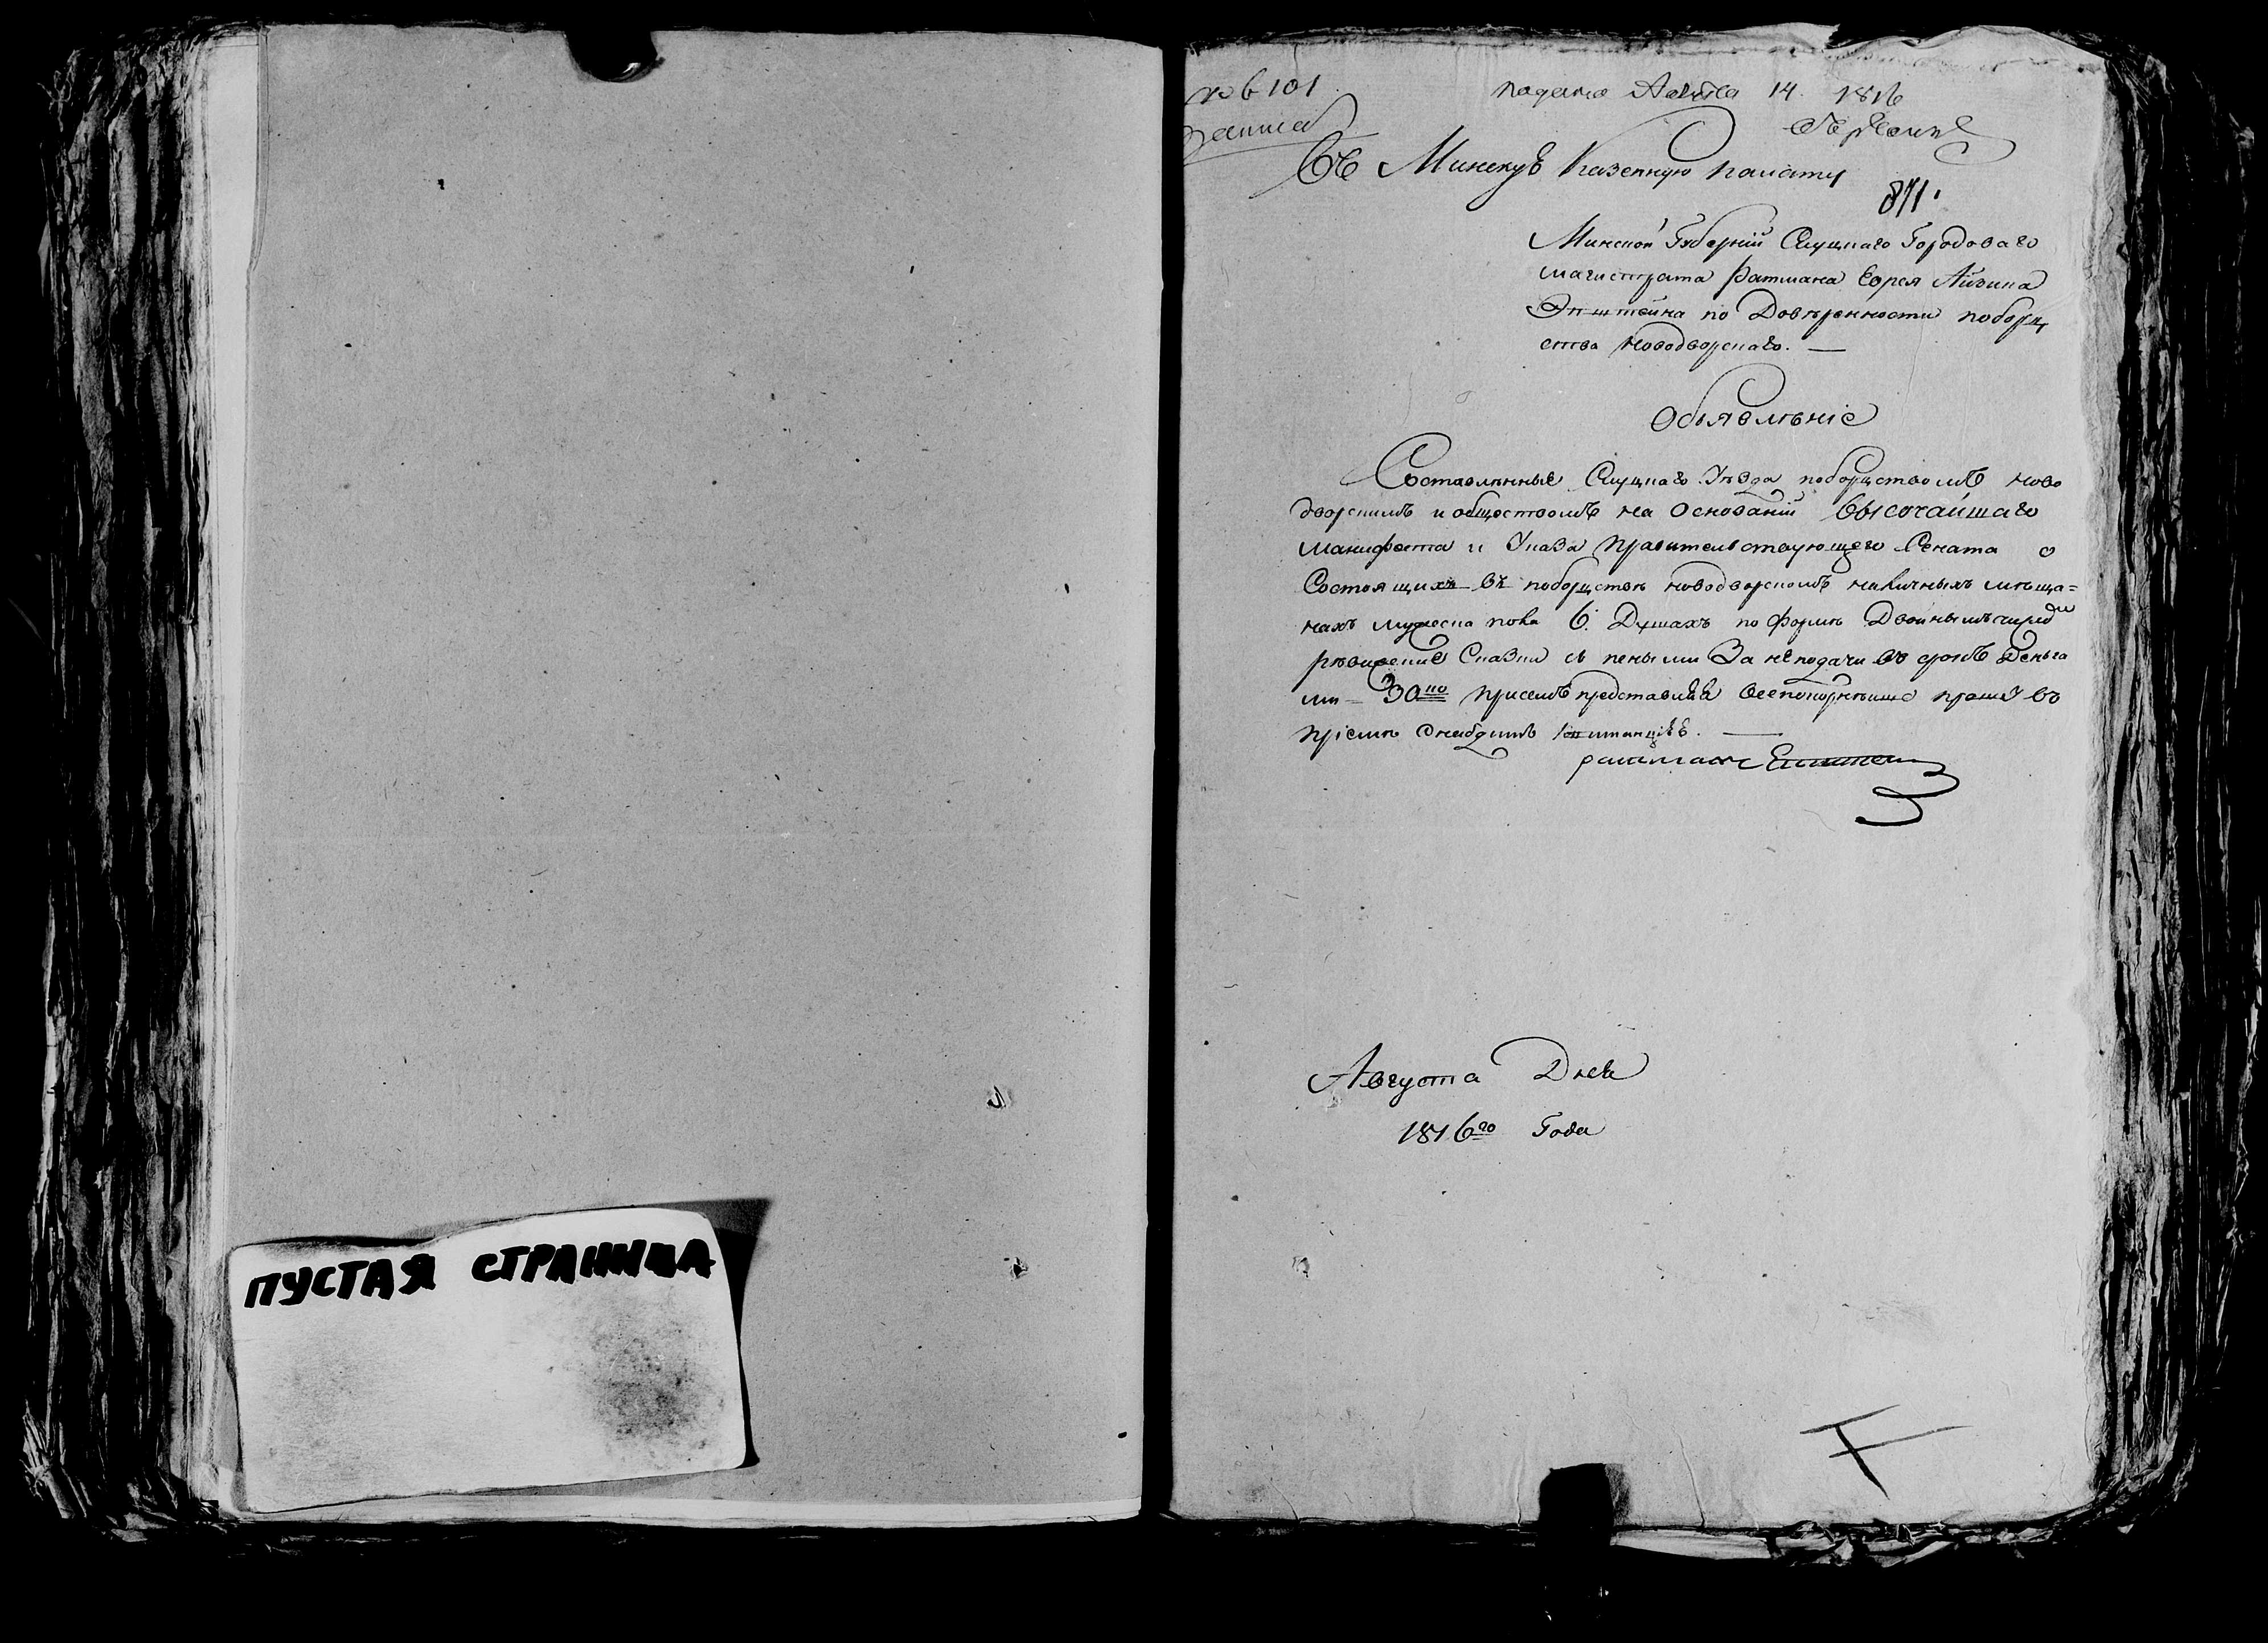 ПУСТАЯ СТРАНИЦА
подано Августа 14 1816
Въ Минскую Казенную палату
871.
Минской Губерніи Слуцкаго Городоваго
магистрата Ратмана Еврея Айзика
Эпштейна по Довѣренности поборц
ства Новодворскаго. —
Объявлѣніе
Составлѣнные Слуцкаго Уѣзда поборцствомъ ново
дворскимъ и обществомъ на Основаніи высочайшаго
манифеста и Указа Правительствующего Сената о
Состоящихъ въ поборцствѣ новодворскомъ наличныхъ мѣща=
нахъ мужеска пола 6. Душахъ по формѣ
рѣвизские Сказки съ пеными За неподачи въ срокъ деньга
ми — 30 присемъ представляя всепокорнѣише прошу въ
пріемѣ снабдить квитанціею. —
ратманъ Епштеин
Августа Дня
1816го Года